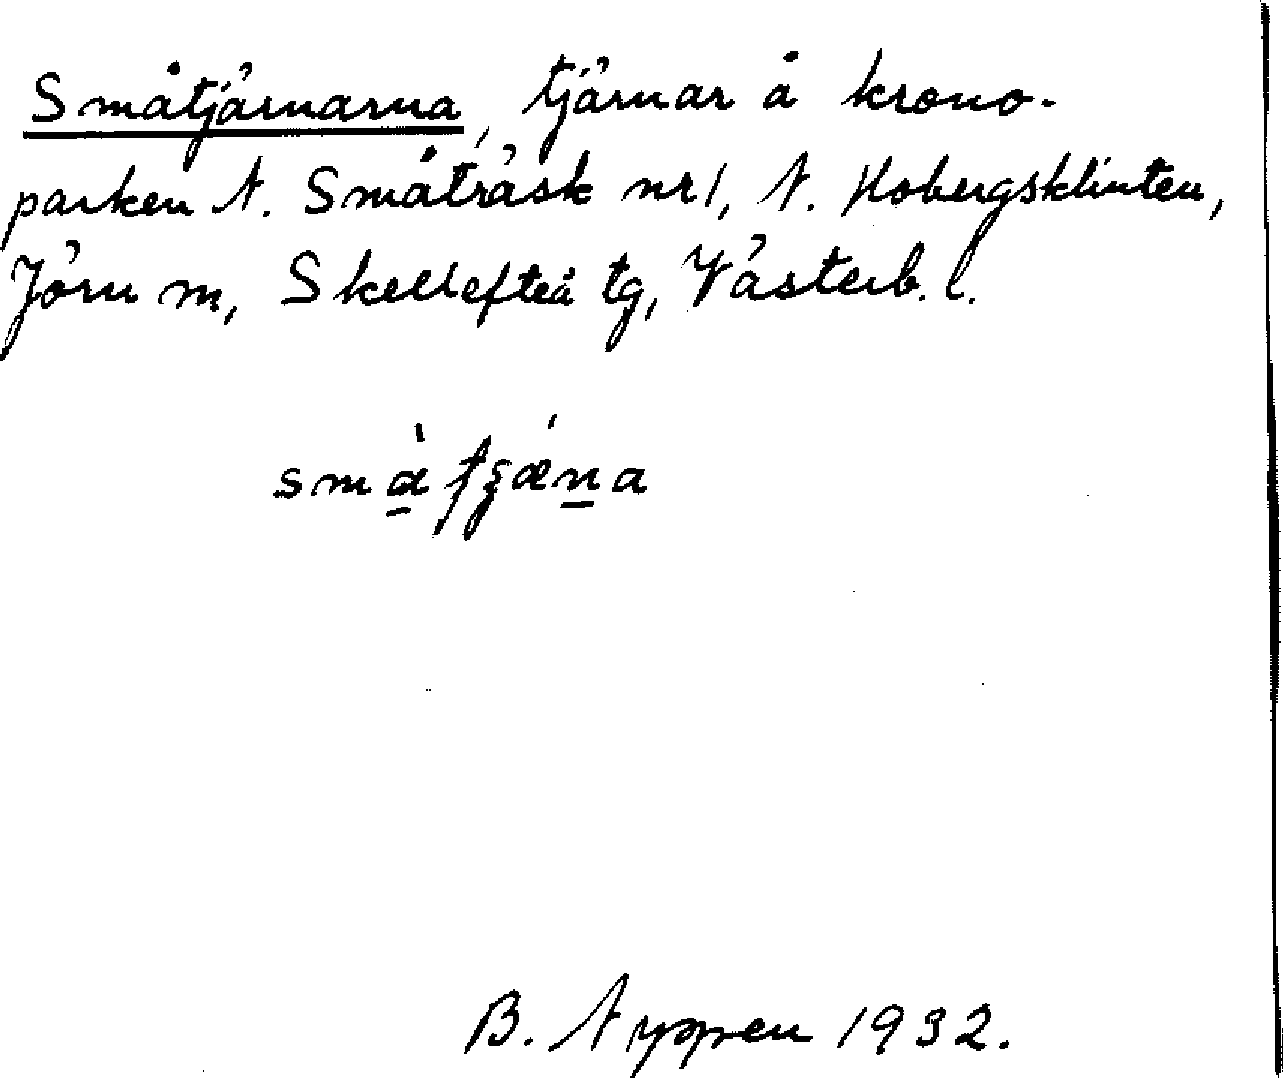 Småtjärnarna, tjärnar å krono-
parken N. Småträsk nr 1, N. Hobergsklinten,
Jörn m, Skellefteå tg, Västerb. l.
B. Nyppen 1932.